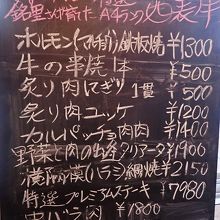 銘里さげ育てた Aランク 地表牛
ホルモン(マルチョウ)鉄板焼 ¥1300
牛の串焼 1本 ¥500
炙り肉にぎり 1貫 ¥500
炙り肉ユッケ ¥1200
カルパッチョ肉肉 ¥1400
野菜と肉の出合タリアータ ¥1900
横隔膜(ハラミ)網焼 ¥2150
特選 プレミアムステーキ ¥7980
中バラ肉 ¥1800